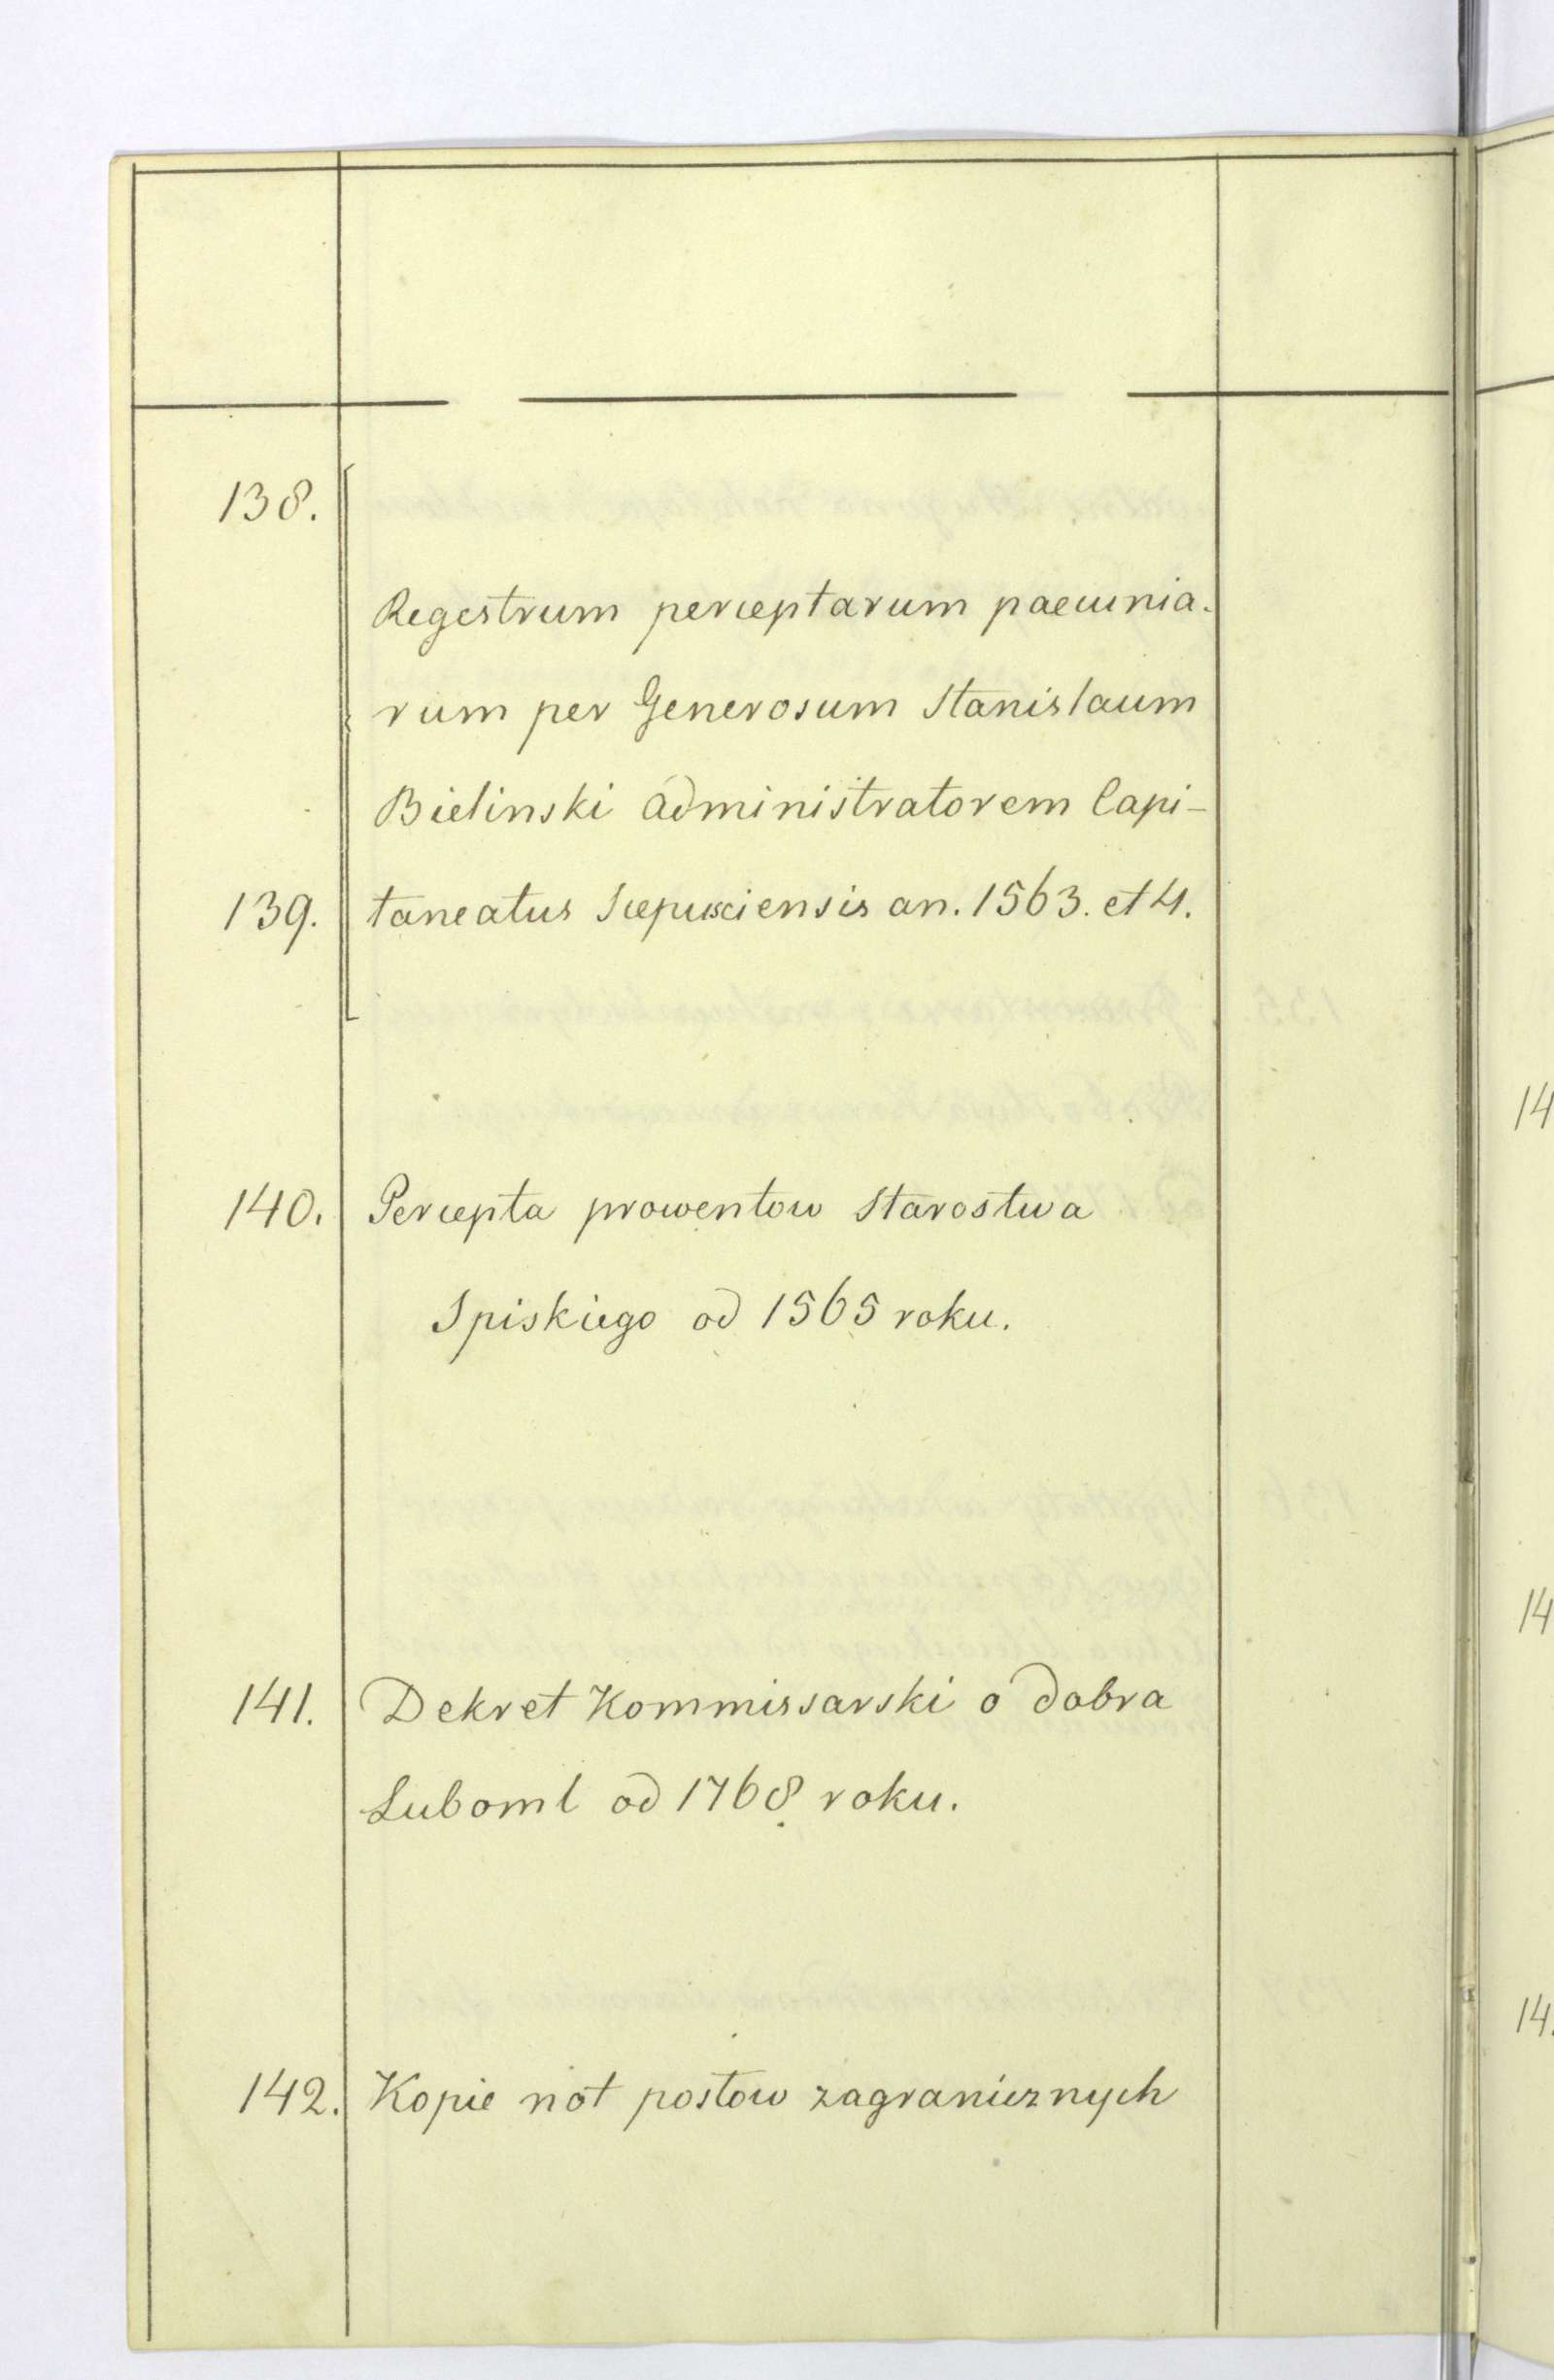 138.
Regestrum perceptarum paecunia-
rum per Generosum Stanislaum
Bielinski administratorem Capi-
139. taneatus an. 1563. et 4.
140. Percepta prowentow Starostwa
Spiskiego od 1565 roku.
141. Dekret Kommissarski o dobra
Luboml od 1768 roku.
142. Kopie not postow zagranicznych
14
14
14.